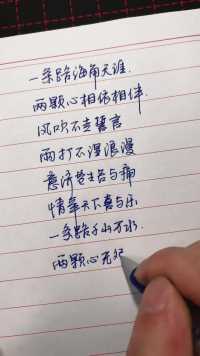 一条路海角天涯.
两颗心相依相伴
风吹不走誓言
雨打不湿浪漫
意济苍生苦与痛
情牵天下喜与乐
一条路千山万水.
两颗心无